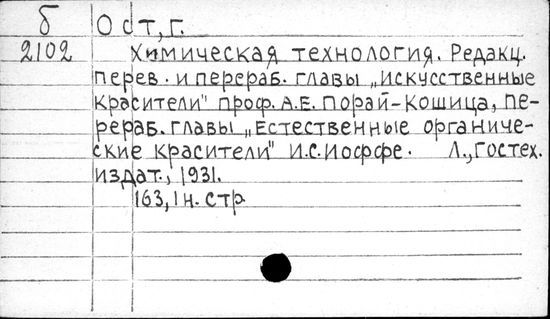 б Ост, г.
2102 Химическая технология. Редакц.
перев. и перераб. главы „Искусственные
красители" проф. А.Е. Порай-Кошица, пе-
рераб. главы „Естественные органиче-
ские красители" И.С. Иоффе. Л., Гостех.
издат., 1931.
163, 1 н. стр